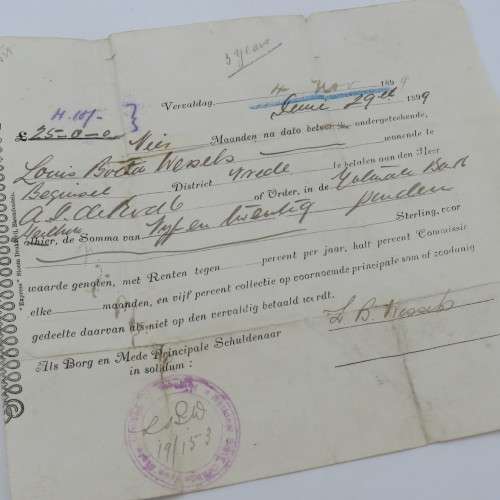 3 years
Vervaldag, 4 Nov 1899
H. 10/-
£25-0-0 June 29th 1899
Vier Maanden na dato belooft ondergeteekende,
Louis Botha Wessels wonende te
District Vrede te betalen aan den Heer
of Order, in de Bank
alhier, de Somma van Vyf en twentig ponden Sterling, voor
waarde genoten, met Renten tegen percent per jaar, half percent Commissie
elke maanden, en vijf percent collectie op voornoemde principale som of zoodanig
gedeelte daarvan als niet op den vervaldag betaald wordt.
L B Wessels
Als Borg en Mede Principale Schuldenaar
in solidum :
19/153
"Express" Stoom Drukkerij, Bloemfontein.